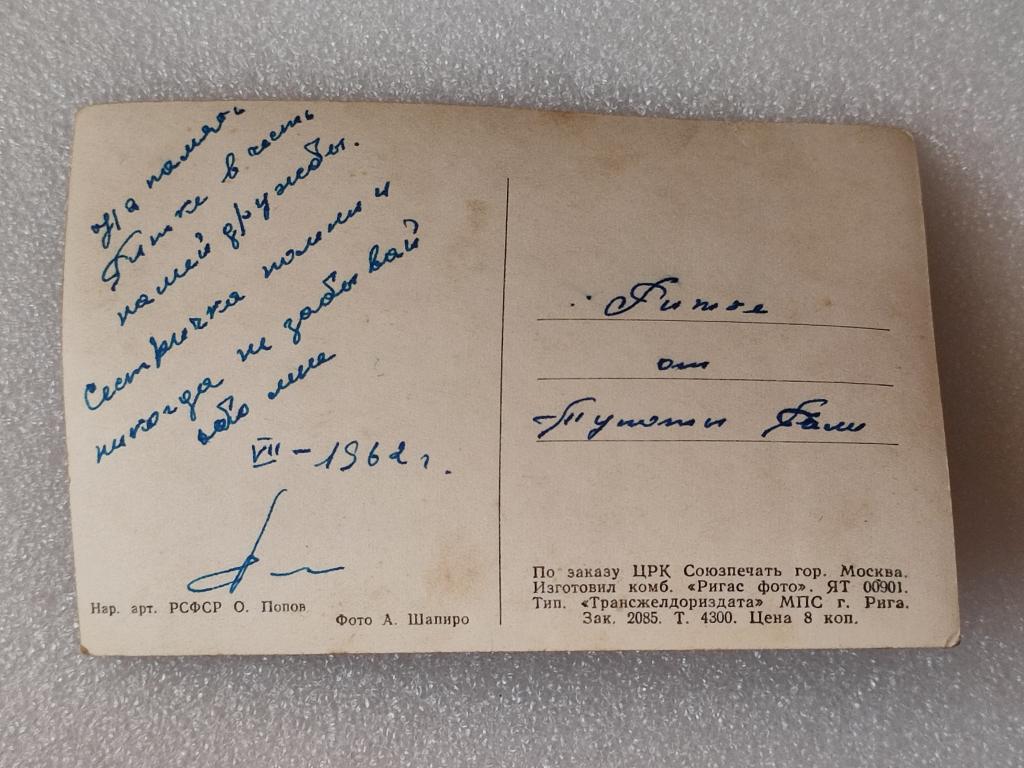 На память
Ритке в честь
нашей дружбы.
Сестричка помни и
никогда не забывай
обо мне
VII – 1962 г.
Нар. арт. РСФСР О. Попов
Фото А. Шапиро
Ритке
от
Гали
По заказу ЦРК Союзпечать гор. Москва.
Изготовил комб. «Ригас фото». ЯТ 00901.
Тип. «Трансжелдориздата» МПС г. Рига.
Зак. 2085. Т. 4300. Цена 8 коп.